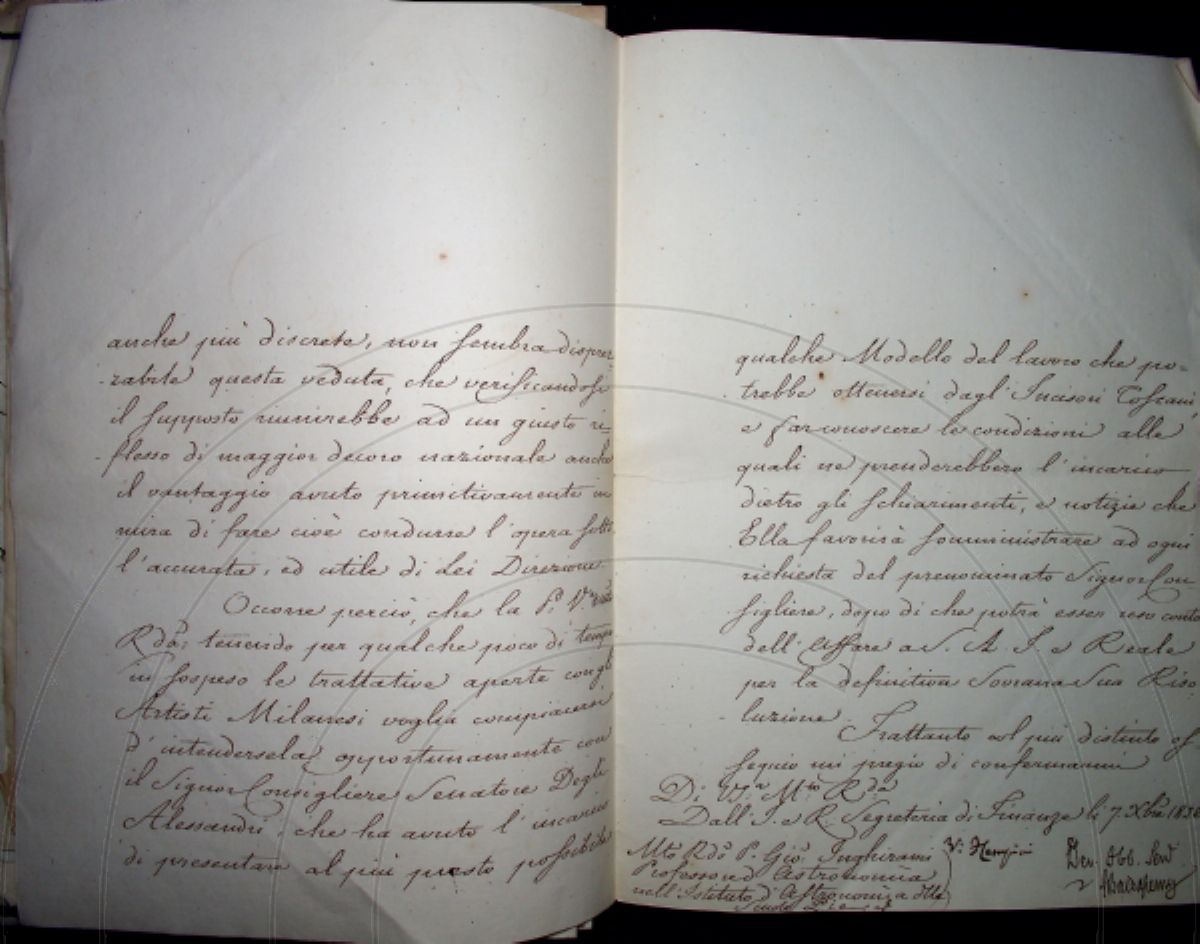 anche più discrete, non sembra disprez-
-zabile questa veduta, che verificandosi
il supposto riunirebbe ad un giusto ri=
-flesso di maggior decoro nazionale anche
il vantaggio avuto primitivamente in
mira di fare cioè condurre l'opera sotto
l'accurata, ed utile di Lei Direzione.
Occorre perciò, che la P. V. Mto
Rda: tenendo per qualche poco di tempo
in sospeso le trattative aperte con gli
Artisti Milanesi voglia compiacersi
d'intendersela opportunamente con
il Signor Consigliere Senatore Degli
Alessandri, che ha avuto l'incarico
di presentare al più presto possibile
qualche Modello del lavoro che po=
-trebbe ottenersi dagl'Incisori Toscani
e far conoscere le condizioni alle
quali ne prenderebbero l'incarico
dietro gli schiarimenti, e notizie che
Ella favorirà somministrare ad ogni
richiesta del prenominato Signor Con
sigliere, dopo di che potrà esser reso conto
dell'Affare a S. A. I. e Reale
per la definitiva Sovrana Sua Riso
luzione.
Frattanto col più distinto os
sequio mi pregio di confermarmi
Di Va. Mto Rda
Dall'I. e R. Segreteria di Finanze li 7. Xbre
Mto Rdo P. Gio. Inghirami
Professore d'Astronomia
nell'Istituto d'Astronomia delle
Scuole Pie
Dev. Obb. Serv